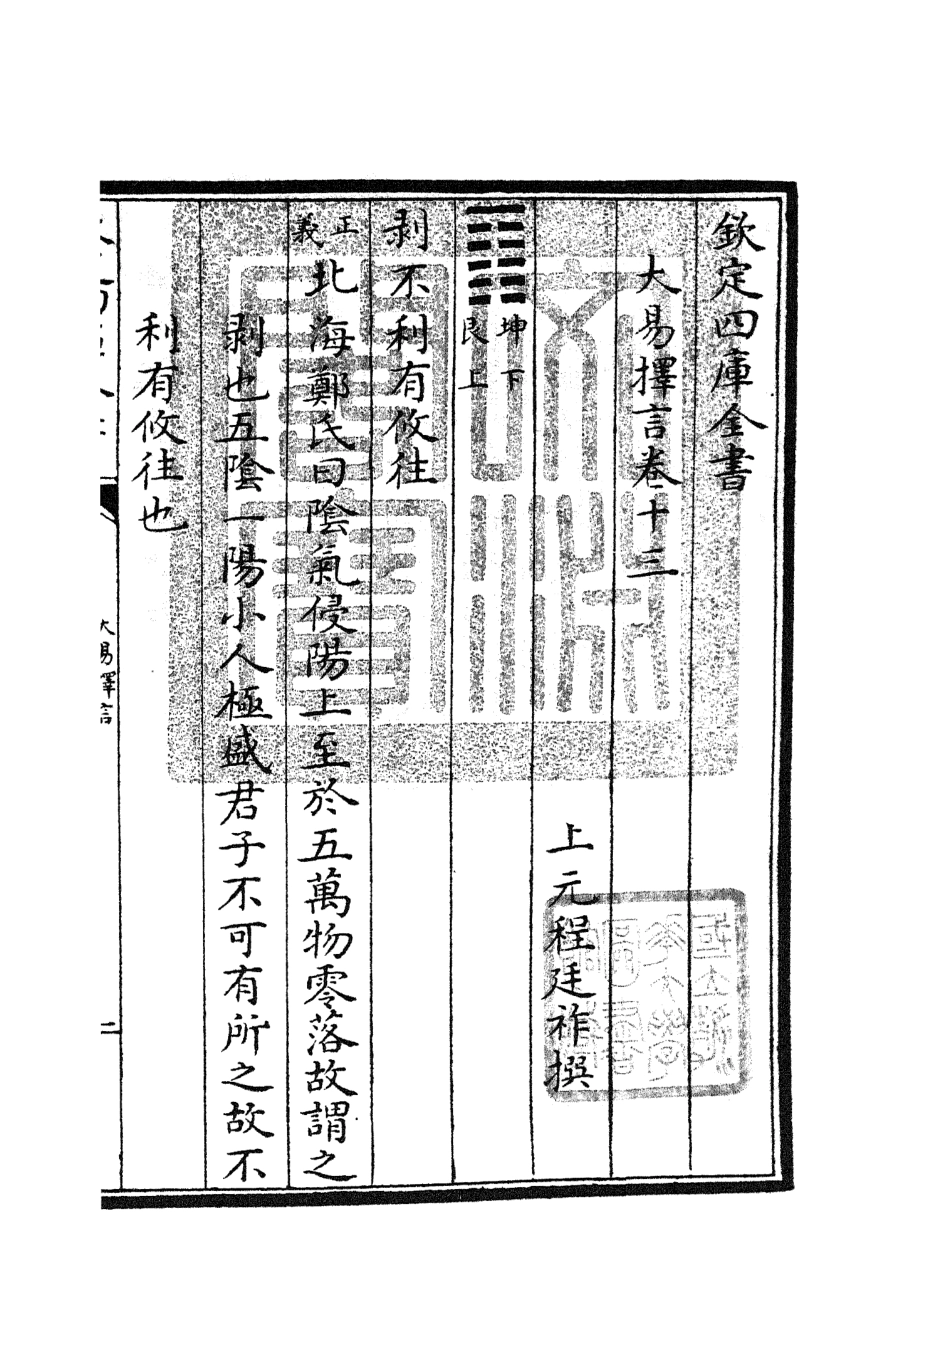 欽定四庫全書
大易擇言卷十三
上元程廷祚撰
䷖
坤下
艮上
剥不利有攸往
正義
北海鄭氏曰陰氣侵陽上至於五萬物零落故謂之
剥也五陰一陽小人極盛君子不可有所之故不
利有攸往也
大易擇言